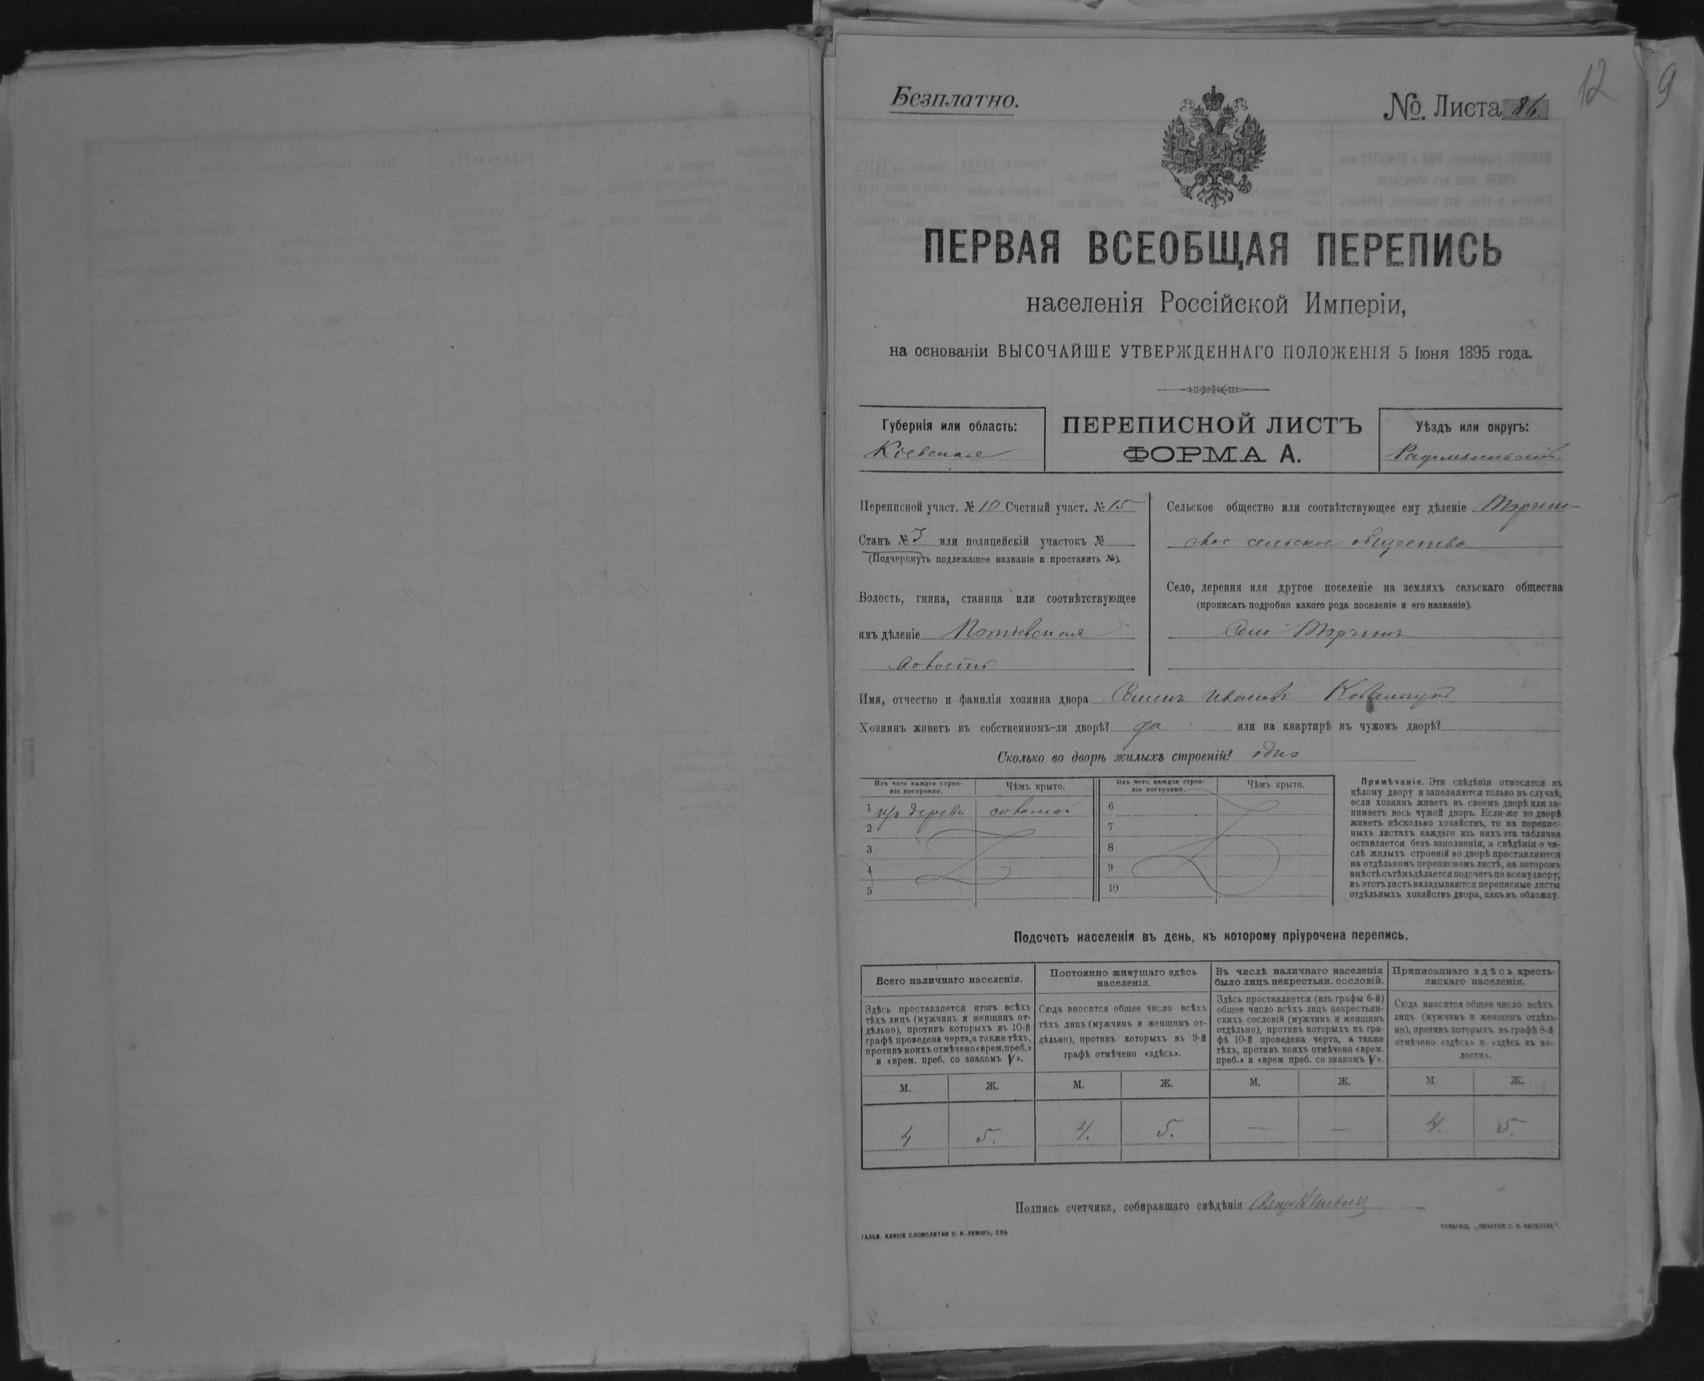 12
9
Безплатно.
№. Листа 86.
ПЕРВАЯ ВСЕОБЩАЯ ПЕРЕПИСЬ
населенія Россійской Имперіи,
на основаніи ВЫСОЧАЙШЕ УТВЕРЖДЕННАГО ПОЛОЖЕНІЯ 5 Іюня 1895 года.
Губернія или область:
Кіевская
ПЕРЕПИСНОЙ ЛИСТЪ
ФОРМА А.
Уѣздъ или округъ:
Радомысльскій
Переписной участ. № 10 Счетный участ. № 15
Станъ № 3 или полицейскій участокъ №
(Подчеркнуть подлежащее названіе и проставить №).
Волость, гмина, станица или соотвѣтствующее
имъ дѣленіе Потіевская
волость
Сельское общество или соотвѣтствующее ему дѣленіе
сельское общество
Село, деревня или другое поселеніе на земляхъ сельскаго общества
(прописать подробно какого рода поселеніе и его названіе).
Село
Имя, отчество и фамилія хозяина двора Семенъ Ивановъ
Хозяинъ живетъ въ собственномъ-ли дворѣ? да или на квартирѣ въ чужомъ дворѣ?
Сколько во дворѣ жилыхъ строеній? одно
Изъ чего каждое строе-
ніе построено.
Чѣмъ крыто.
1 изъ дерева соломой
2
3
4
5
Изъ чего каждое строе-
ніе построено.
Чѣмъ крыто.
6
7
8
9
10
Примѣчаніе. Эти свѣдѣнія относятся къ
цѣлому двору и заполняются только въ случаѣ,
если хозяинъ живетъ въ своемъ дворѣ или за-
нимаетъ весь чужой дворъ. Если-же во дворѣ
живетъ нѣсколько хозяйствъ, то на перепис-
ныхъ листахъ каждаго изъ нихъ эта табличка
оставляется безъ заполненія, а свѣдѣнія о чи-
слѣ жилыхъ строеній во дворѣ проставляются
на отдѣльномъ переписномъ листѣ, на которомъ
вмѣстѣ съ тѣмъ дѣлается подсчетъ по всему двору;
въ этотъ листъ вкладываются переписные листы
отдѣльныхъ хозяйствъ двора, какъ въ обложку.
Подсчетъ населенія въ день, къ которому пріурочена перепись.
Всего наличнаго населенія.
Здѣсь проставляется итогъ всѣхъ
тѣхъ лицъ (мужчинъ и женщинъ от-
дѣльно), противъ которыхъ въ 10-й
графѣ проведена черта, а также тѣхъ,
противъ коихъ отмѣчено «врем. преб.»
и «врем. преб. со знакомъ V».
М. Ж.
4 5.
Постоянно живущаго здѣсь
населенія.
Сюда вносится общее число всѣхъ
тѣхъ лицъ (мужчинъ и женщинъ от-
дѣльно), противъ которыхъ въ 9-й
графѣ отмѣчено «здѣсь».
М. Ж.
4. 5.
Въ числѣ наличнаго населенія
было лицъ некрестьян. сословій.
Здѣсь проставляется (изъ графы 6-й)
общее число всѣхъ лицъ некрестьян-
скихъ сословій (мужчинъ и женщинъ
отдѣльно), противъ которыхъ въ гра-
фѣ 10-й проведена черта, а также
тѣхъ, противъ коихъ отмѣчено «врем.
преб.» и «врем. преб. со знакомъ V».
М. Ж.
— —
Приписаннаго здѣсь кресть-
янскаго населенія.
Сюда вносится общее число всѣхъ
лицъ (мужчинъ и женщинъ отдѣль-
но), противъ которыхъ въ графѣ 8-й
отмѣчено «здѣсь» и «здѣсь въ во-
лости».
М. Ж.
4. 5.
Подпись счетчика, собиравшаго свѣдѣнія
ГАЛЬВ. КЛИШЕ СЛОВОЛИТНИ О. И. ЛЕМАНЪ, СПБ.
ТОВАРИЩ. „ПЕЧАТНЯ С. П. ЯКОВЛЕВА“.